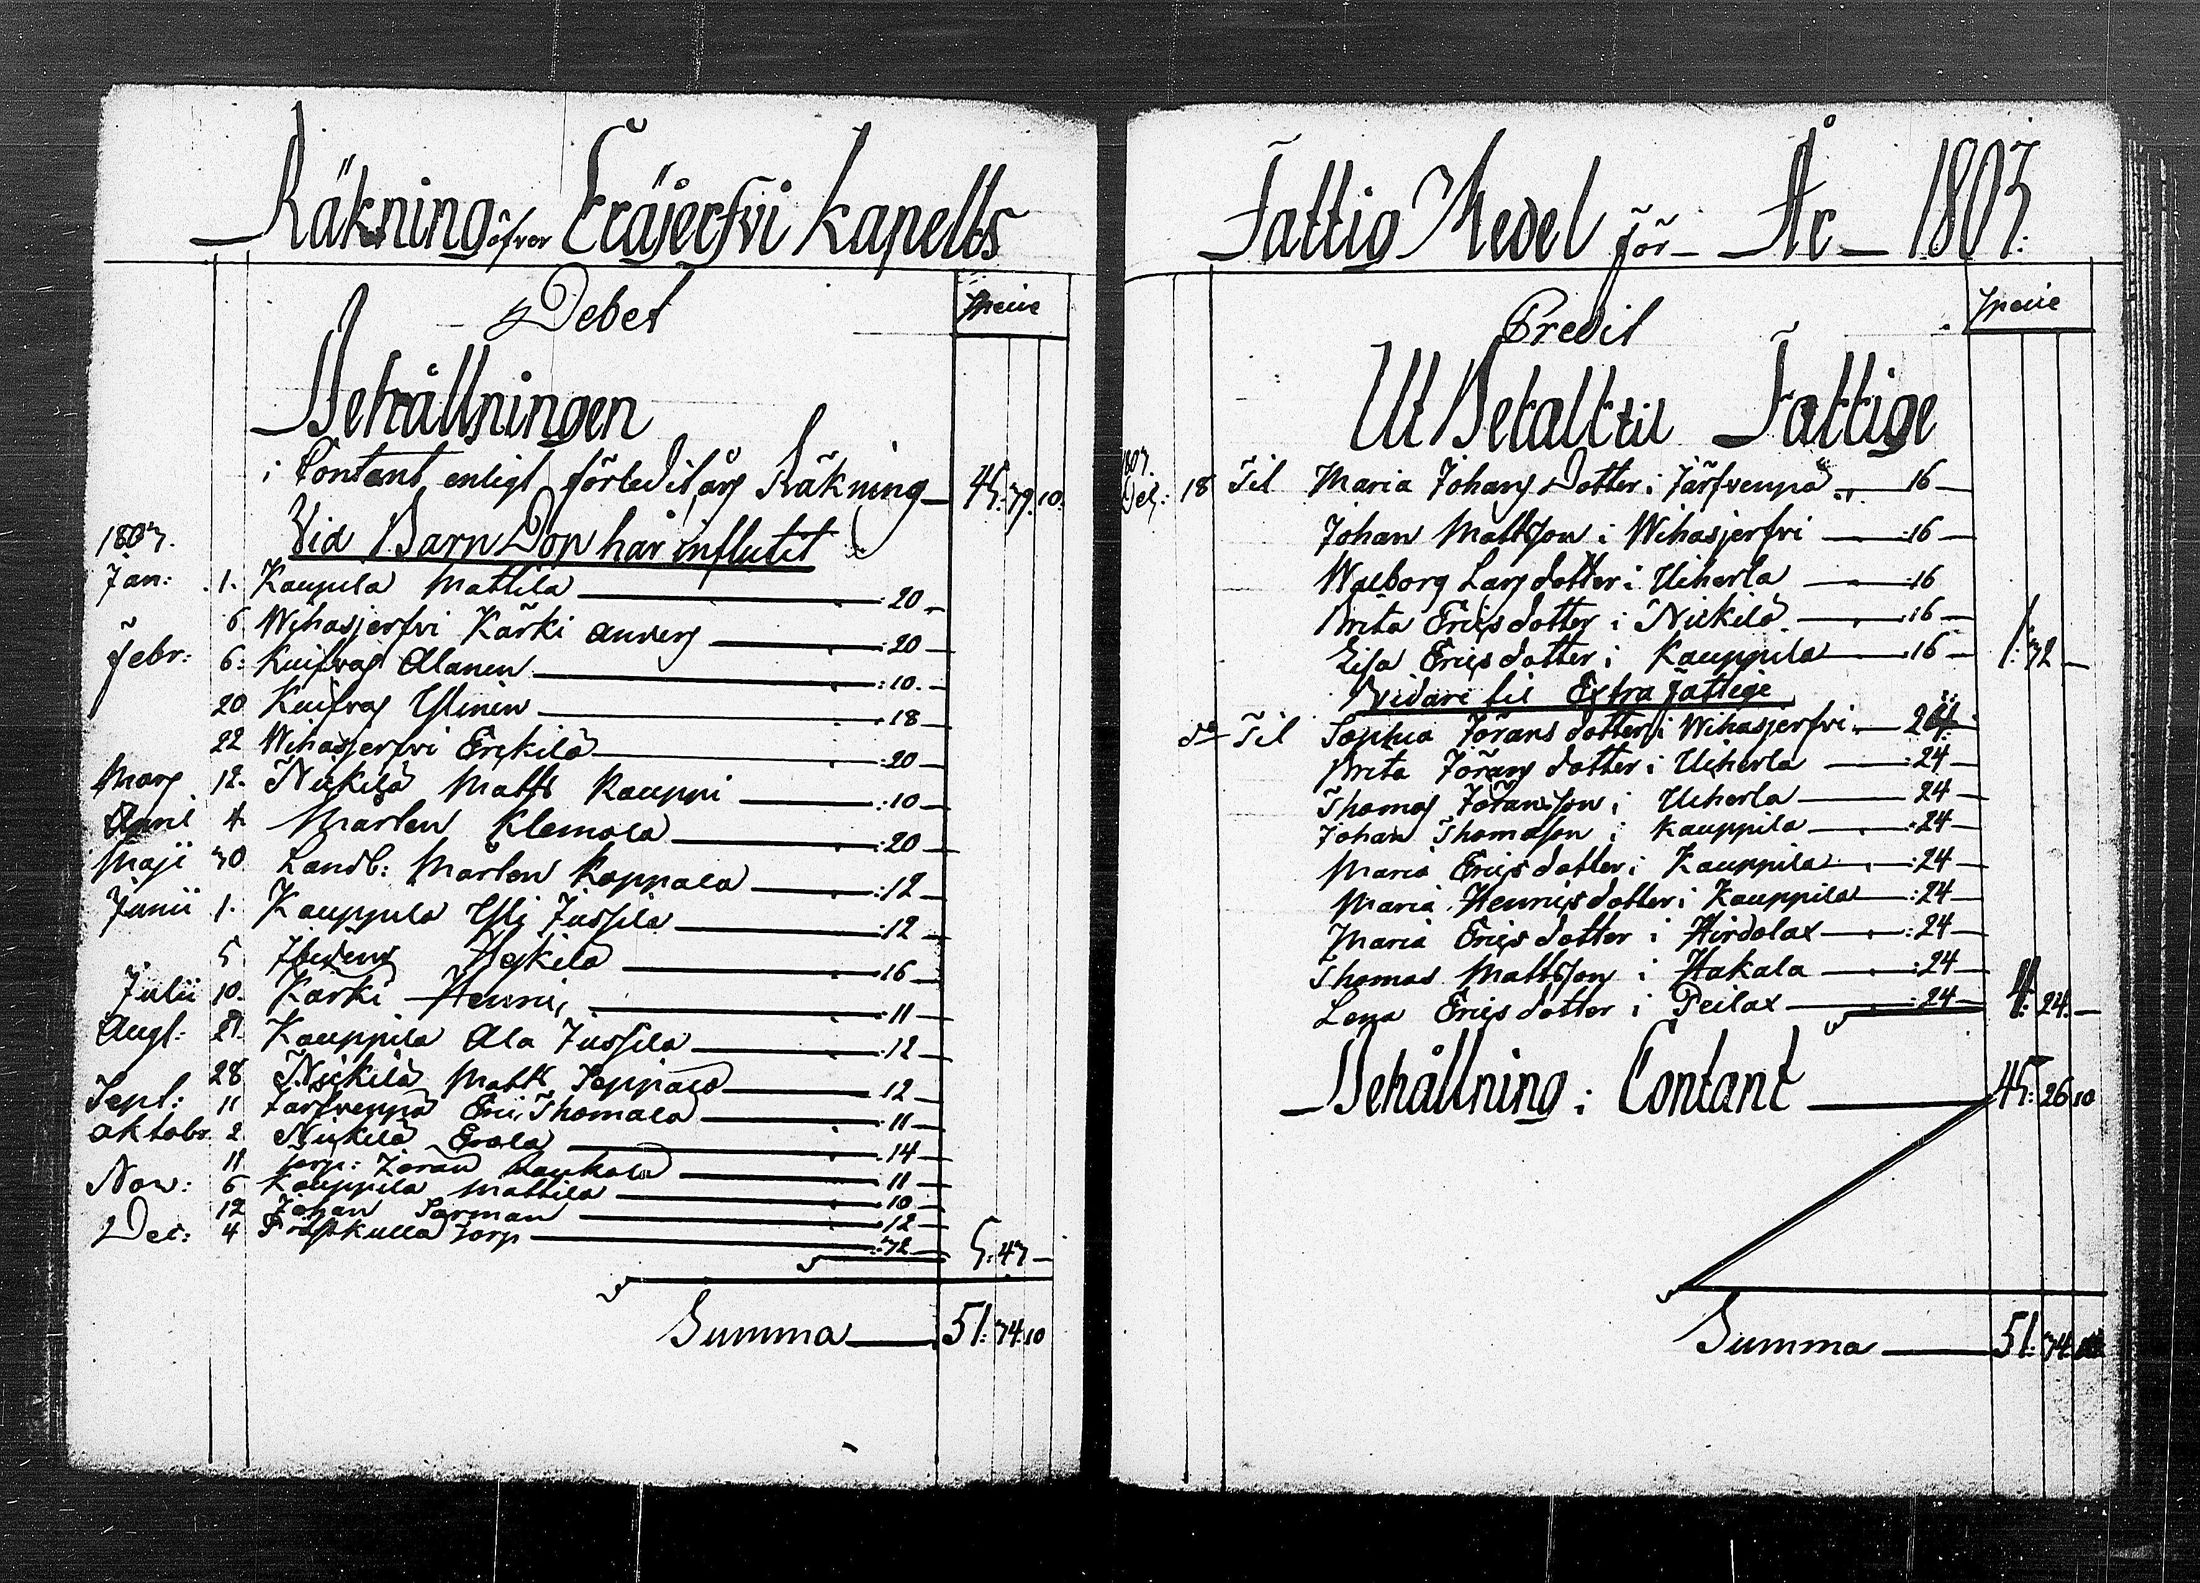 Räkning öfver Eräjerfvi Kapells
Debet
Specie
Behållningen
i Contant enligt förledit års Räkning 45: 39: 10.
1803. Vid Barn Dop har influtit
Jan: 1. Kauppila Mattila :20
6 Wihasjerfvi Kärki Anders :20
Febr: 6: Kuifvas Alanen :10.
20 Kuifvas Ylinen :18
22 Wihasjerfvi Erckilä :20
Mars 12. Nickilä Matts Kauppi :10
April 4. Marten Klemola :20
Maji 30 Landb: Marten Koppala :12
Junii 1. Kauppila Yli Jussila :12
5 Heikilä :16
Julii 10. Kärki Henric :11
Augt: 21. Kauppila Ala Jussila :12
28 Nickilä Matts Seppälä :12
Sept: 11 Jarfvenpä Eric Thomala :11
Oktobr. 2. Nickilä Erola :14
11 torp: Jöran :11
Nov: 6 Kauppila Mattila :10
12 Johan Sorman :12
Dec: 4 Präskulla torp :32 5: 43
Summa 51: 34: 10
Fattig Medel för År 1803:
Credit
Specie
Ut Betalt til Fattige
1803.
Dec: 18 Til Maria Johans Dotter i Järfvenpä 16
Johan Mattsson i Wihasjerfvi :16
Walborg Lars dotter i Uiherla :16
Brita Erics dotter i Nickilä :16
Lisa Erics dotter i Kauppila :16 1: 32
Vidare til Extra Fattige
do Til Sophia Jörans dotter i Wihasjerfvi 24
Brita Jörans dotter i Uiherla :24
Thomas Jöransson i Uiherla 24
Johan Thomasson i Kauppila :24
Maria Erics dotter i Kauppila :24
Maria Henrics dotter i Kauppila :24
Maria Erics dotter i Hirdolax :24
Thomas Mattsson i Hakala :24
Lena Erics dotter i Peilax :24 4: 24.
Behållning i Contant 45: 26 10
Summa 51: 34: 10